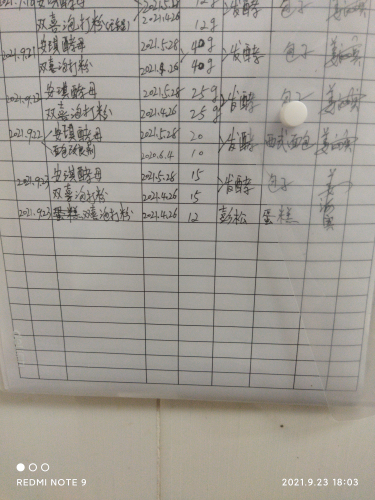 安琪酵母 2021.5.28 12g 发酵 包子
双喜泡打粉 2021.4.26 12g
2021.9.21 安琪酵母 2021.5.28 40g 发酵 包子
双喜泡打粉 2021.4.26 40g
2021.9.22 安琪酵母 2021.5.28 25g 发酵 包子
双喜泡打粉 2021.4.26 25g
2021.9.22 安琪酵母 2021.5.28 20 发酵 西式面包
2020.6.4 10
2021.9.23 安琪酵母 2021.5.28 15 发酵 包子
双喜泡打粉 2021.4.26 15
2021.9.23 双喜泡打粉 2021.4.26 12 彭松 蛋糕
REDMI NOTE 9
2021.9.23 18:03